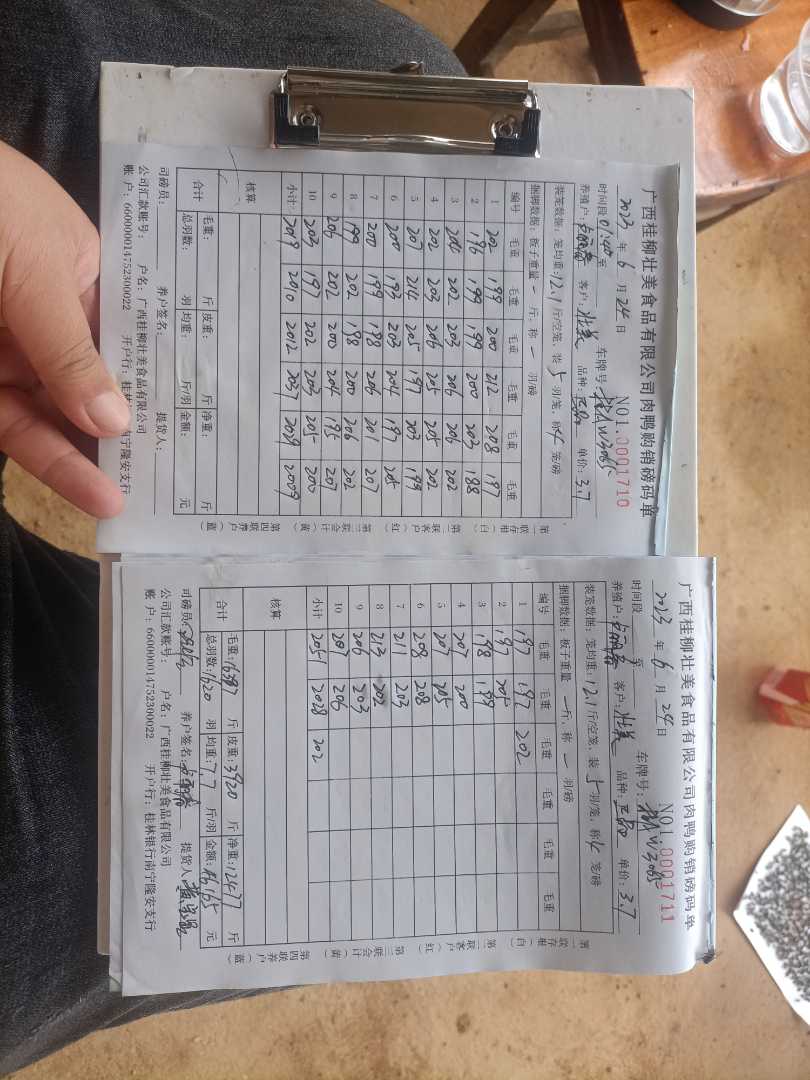 广西桂柳壮美食品有限公司肉鸭购销磅码单
NO1.0001710
2023 年 6 月 24 日
时间段 01:40 至 车牌号:
养殖户: 客户: 壮美 品种: 单价: 3.7
装笼数据: 笼均重: 12.1 斤/空笼、装 5 羽/笼、称 4 笼/磅
捆脚数据: 板子重量 一 斤、称 一 羽/磅
编号 毛重 毛重 毛重 毛重 毛重 毛重
1 202 199 200 212 208 197
2 196 199 199 200 203 188
3 204 202 203 206 206 202
4 202 203 206 205 205 202
5 207 214 205 197 203 199
6 200 193 203 204 197 205
7 200 199 198 206 201 207
8 199 202 198 200 206 202
9 206 202 200 204 195 207
10 203 197 202 203 205 200
小计 2019 2010 2012 2037 2029 2009
核算
合计 毛重: 斤 皮重: 斤 净重: 斤
总羽数: 羽 均重: 斤/羽 金额: 元
司磅员: 养户签名: 提货人:
公司汇款账号: 户名: 广西桂柳壮美食品有限公司
账 户: 660000014752300022 开户行: 桂林 南宁隆安支行
第一联存根(白) 第二联客户(红) 第三联会计(黄) 第四联养户(蓝)
广西桂柳壮美食品有限公司肉鸭购销磅码单
NO1.0001711
2023 年 6 月 24 日
时间段 至 车牌号:
养殖户: 客户: 壮美 品种: 单价: 3.7
装笼数据: 笼均重: 12.1 斤/空笼、装 5 羽/笼、称 4 笼/磅
捆脚数据: 板子重量 一 斤、称 一 羽/磅
编号 毛重 毛重 毛重 毛重 毛重 毛重
1 197 197 202
2 197 205
3 198 199
4 207 200
5 207 205
6 208 208
7 211 203
8 213 202
9 206 203
10 207 206
小计 2051 2028 202
核算
合计 毛重: 16397 斤 皮重: 3920 斤 净重: 12477 斤
总羽数: 1620 羽 均重: 7.7 斤/羽 金额: 46165 元
司磅员: 养户签名: 提货人:
公司汇款账号: 户名: 广西桂柳壮美食品有限公司
账 户: 660000014752300022 开户行: 桂林银行南宁隆安支行
第一联存根(白) 第二联客户(红) 第三联会计(黄) 第四联养户(蓝)